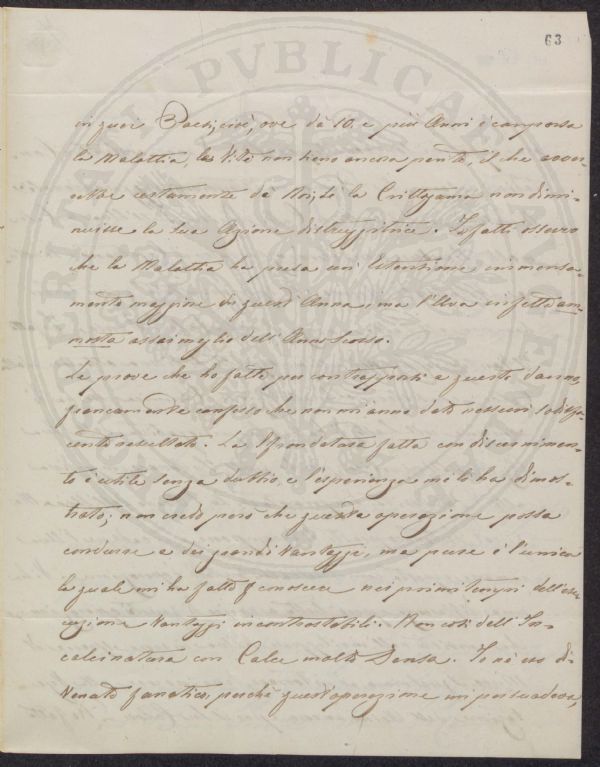 63
in quei Paesi, cioè, ove da 10. e più Anni è comparsa
la Malattia, le Viti non sieno ancora perite, il che
certamente da Noi, se la Crittogama non dimi-
nuisse la sua Azione distruggitrice. Infatti osservo
che la Malattia ha preso un' Estensione immensa-
mente maggiore di quest' Anno, ma l'Uva infetta am-
mosta assai meglio dell' Anno Scorso.
Le prove che ho fatte per contrapporsi a questo danno,
francamente confesso che non mi anno dato nessun sodisfa-
cente resultato. La Sfrondatura fatta con discernimen-
to è utile senza dubbio, e l'esperienza me lo ha dimos-
trato; non credo però che questa operazione possa
condurre a dei grandi Vantaggi, ma pure è l'unica
la quale mi ha fatto conoscere nei primi tempi dell'ese-
cuzione Vantaggi incontrastabili. Non così dell' In-
calcinatura con Calce molto Densa. Io ne ero di-
venuto fanatico, perché quest'operazione mi persuadeva,